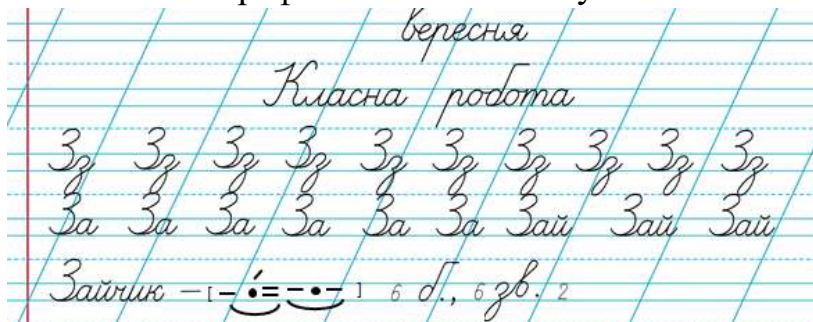 вересня
Класна робота
Зз Зз Зз Зз Зз Зз Зз Зз Зз Зз
За За За За За За Зай Зай Зай
Зайчик – [–•́=–•–] 6 б., 6 зв. 2